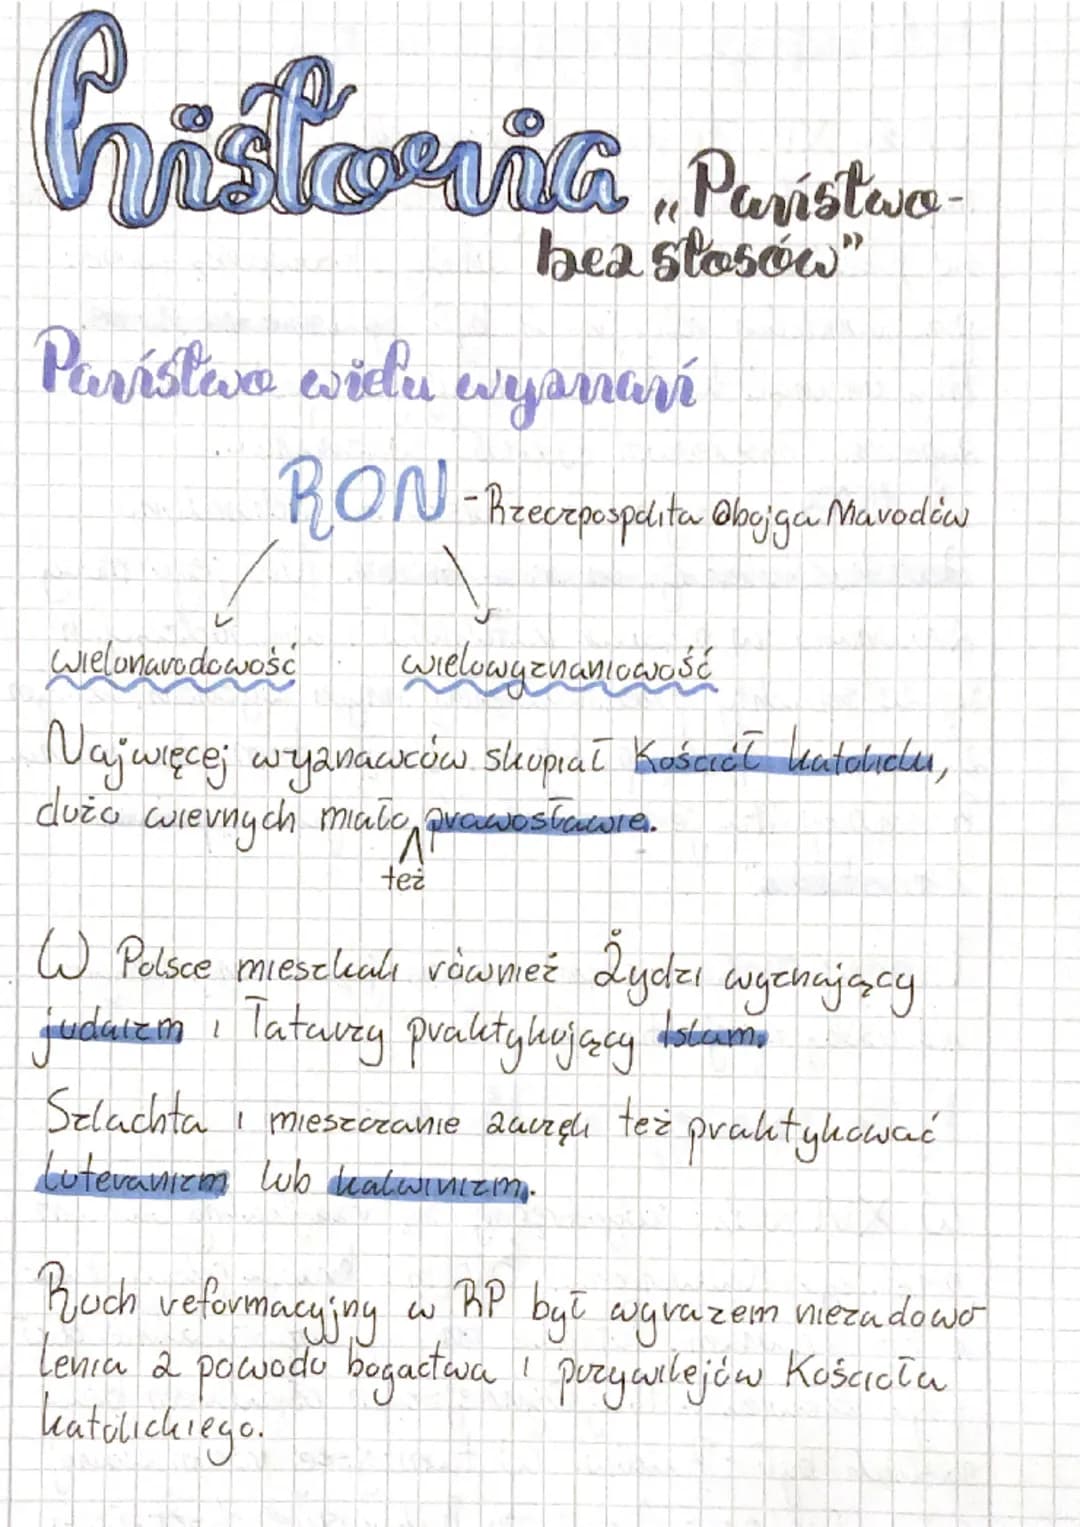 historia „Państwo-
bez stosów”
Państwo wielu wyznań
RON - Rzeczpospolita Obojga Narodów
wielonarodowość wielowyznaniowość
Najwięcej wyznawców skupiał Kościół katolicki,
dużo wiernych miało prawosławie.
też
W Polsce mieszkali również Żydzi wyznający
judaizm i Tatarzy praktykujący Islam.
Szlachta i mieszczanie zaczęli też praktykować
luteranizm lub kalwinizm.
Ruch reformacyjny w RP był wyrazem niezadowo
lenia z powodu bogactwa i przywilejów Kościoła
katolickiego.